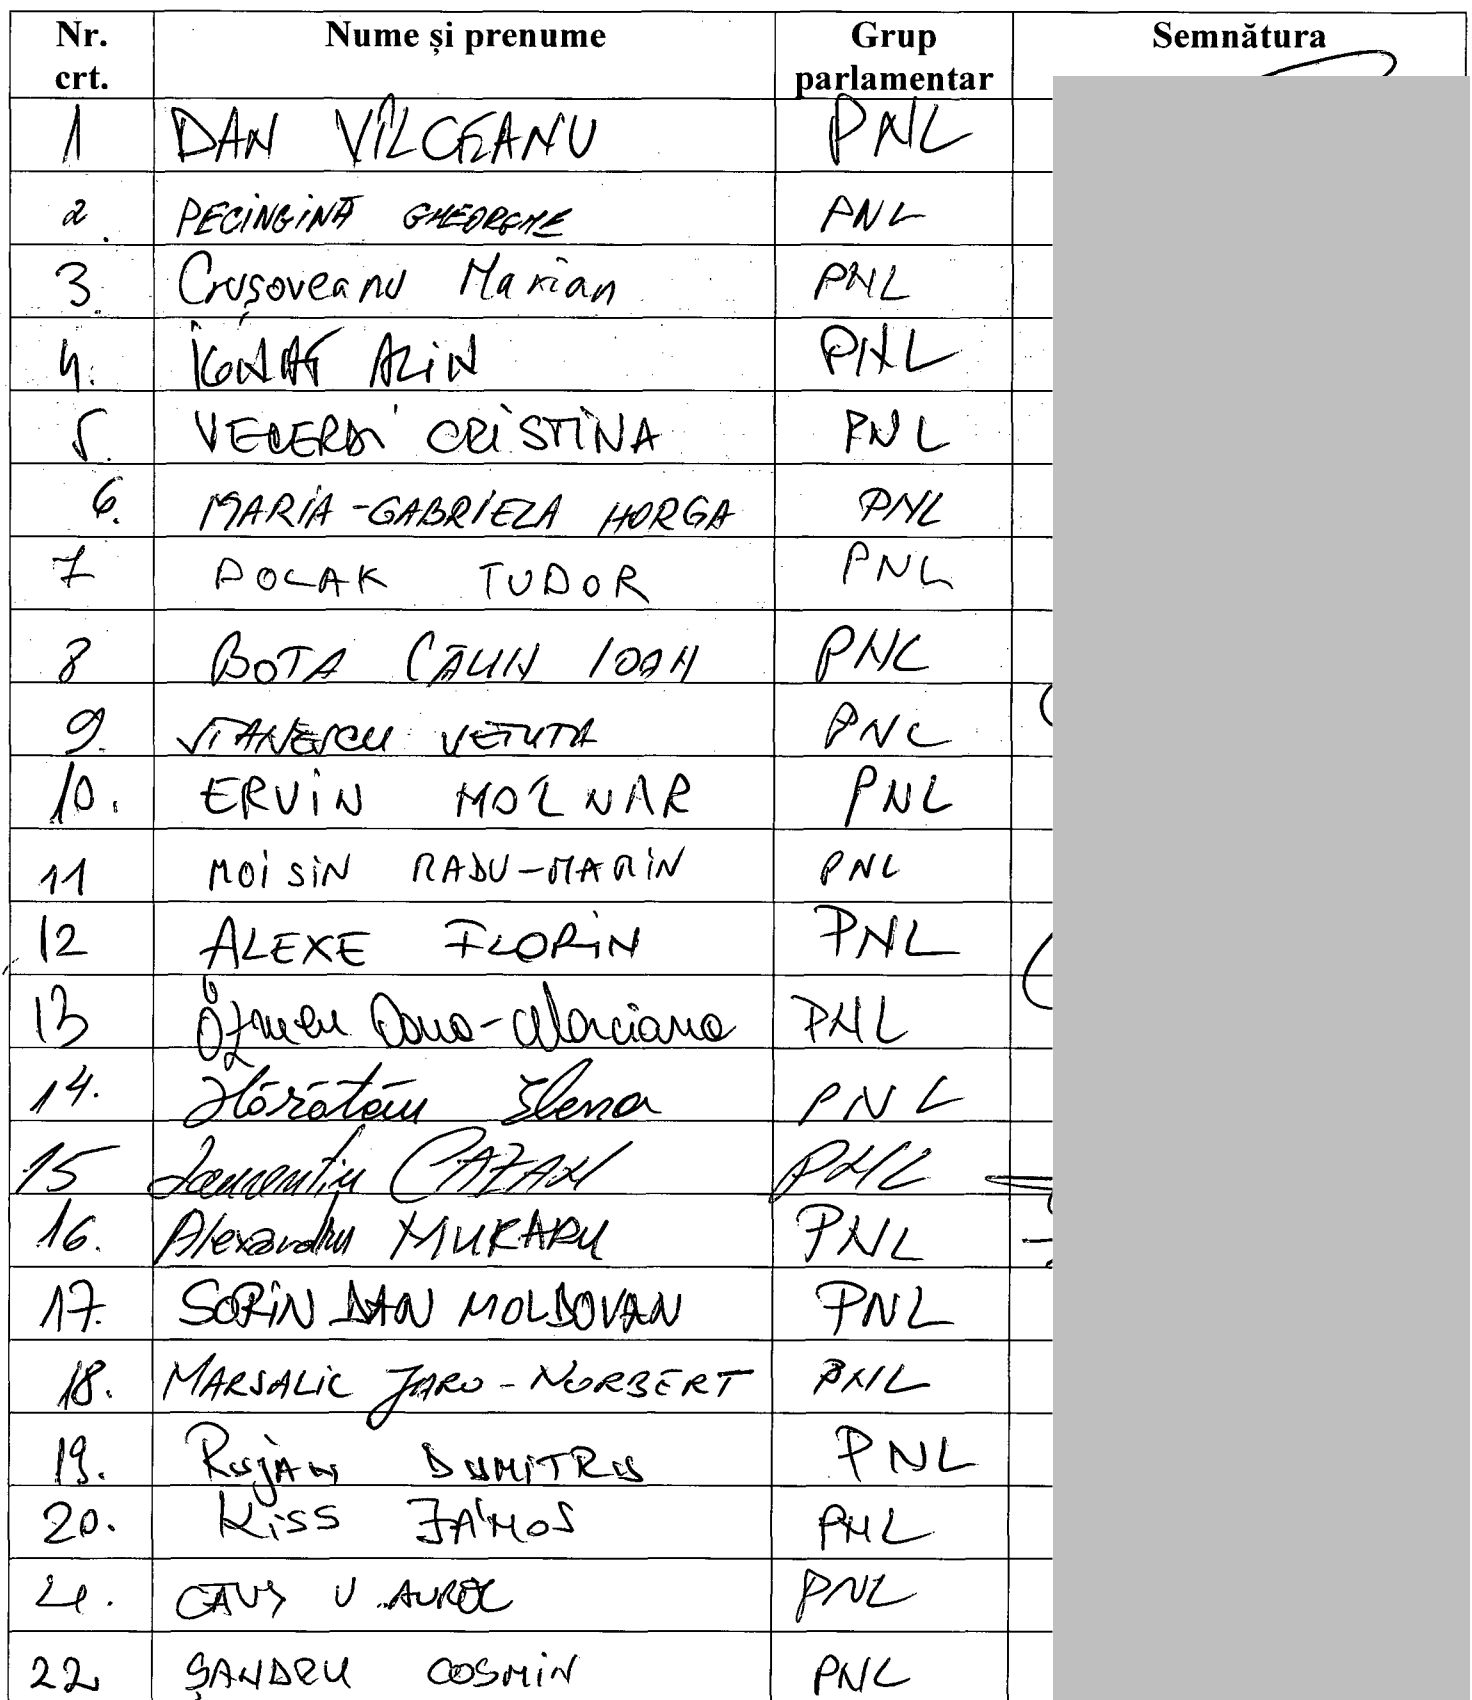 Nr. crt. Nume și prenume Grup parlamentar Semnătura
1 DAN VÎLCEANU PNL
2. PECINGINĂ GHEORGHE PNL
3. Crușoveanu Marian PNL
4. IGNAT ALIN PNL
5. CRISTINA PNL
6. MARIA-GABRIELA HORGA PNL
7 POLAK TUDOR PNL
8 BOTA CĂLIN IOAN PNL
9. STANESCU VETUTA PNL
10. ERVIN MOLNAR PNL
11 MOISIN RADU-MARIN PNL
12 ALEXE FLORIN PNL
13 Özmen Oana-Marciana PNL
14. Hărătău Elena PNL
15 Laurentiu CAZAN PNL
16. Alexandru MURARU PNL
17. SORIN DAN MOLDOVAN PNL
18. MARSALIC JARO-NORBERT PNL
19. RUJAN DUMITRU PNL
20. KISS JÁNOS PNL
21. PNL
22. ȘANDRU COSMIN PNL